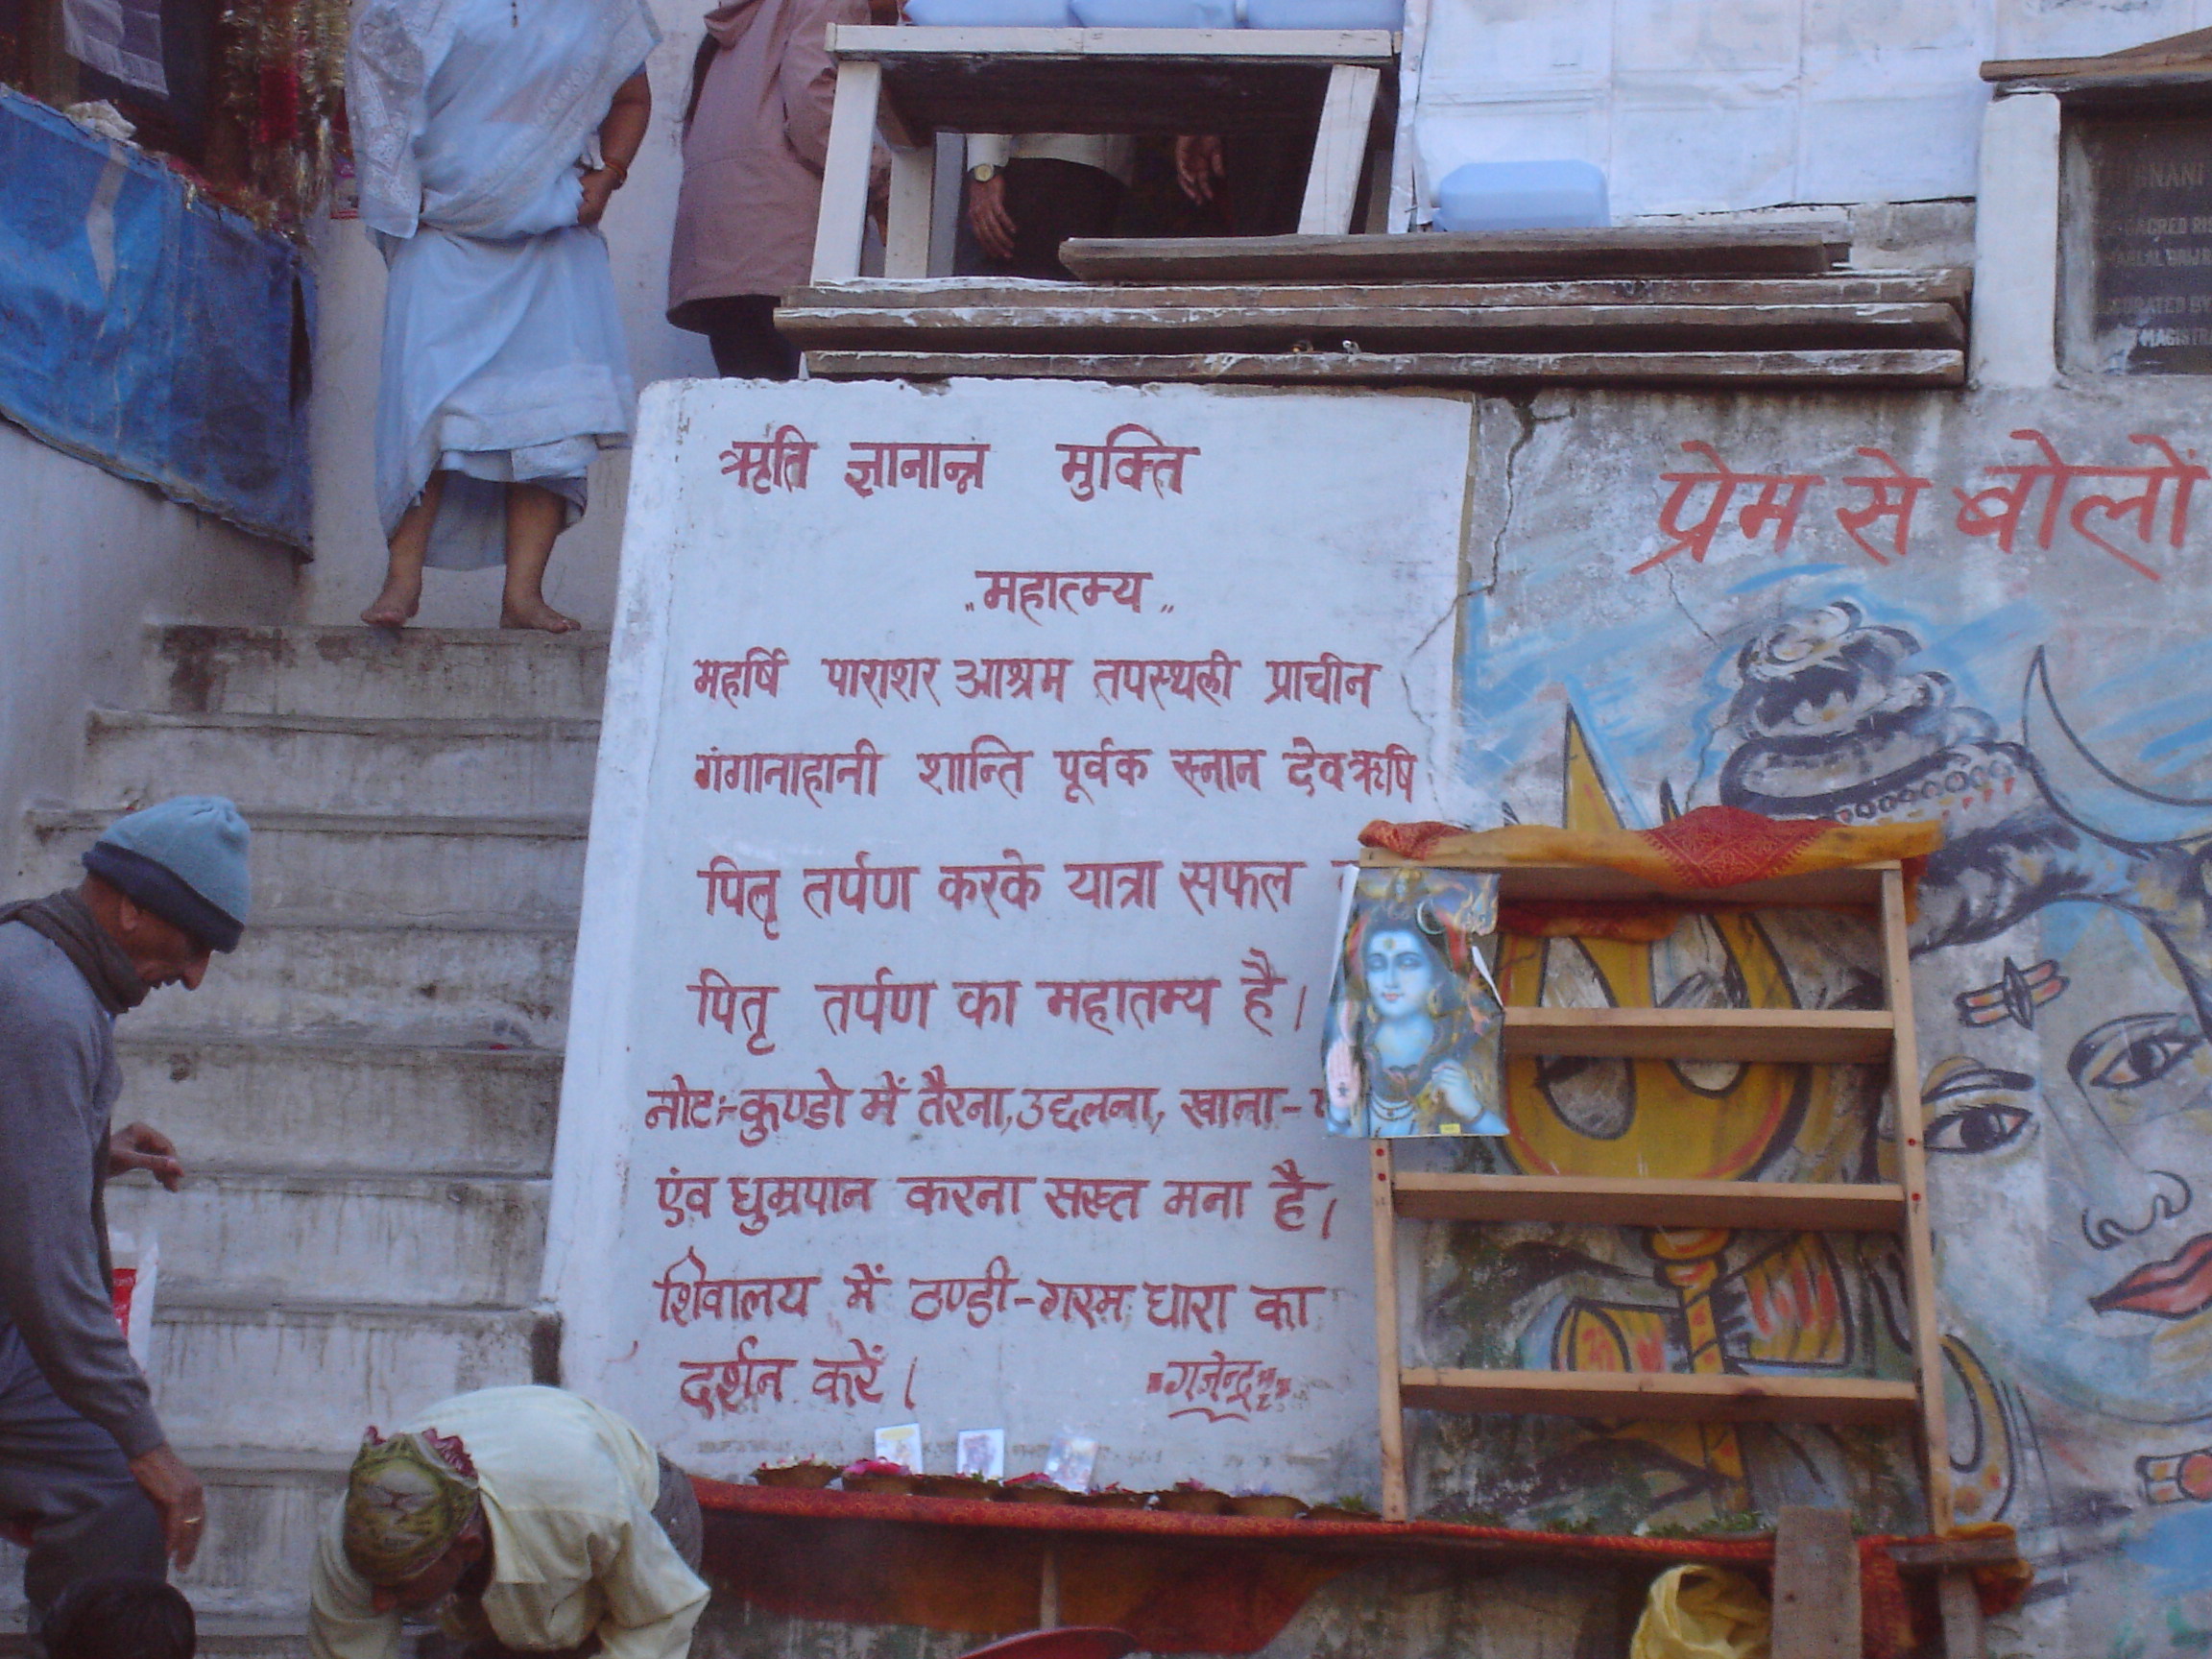 ऋति ज्ञानान्न मुक्ति
„महात्म्य„
महर्षि पाराशर आश्रम तपस्थली प्राचीन
गंगानाहानी शान्ति पूर्वक स्नान देवऋषि
पितृ तर्पण करके यात्रा सफल
पितृ तर्पण का महातम्य है।
नोटः-कुण्डो में तैरना,उद्दलना, खाना-
एंव धुम्रपान करना सख्त मना है।
शिवालय में ठण्डी-गरम धारा का
दर्शन करें।
गजेन्द्र
प्रेम से बोलों
GNANI
SACRED
MAGIS